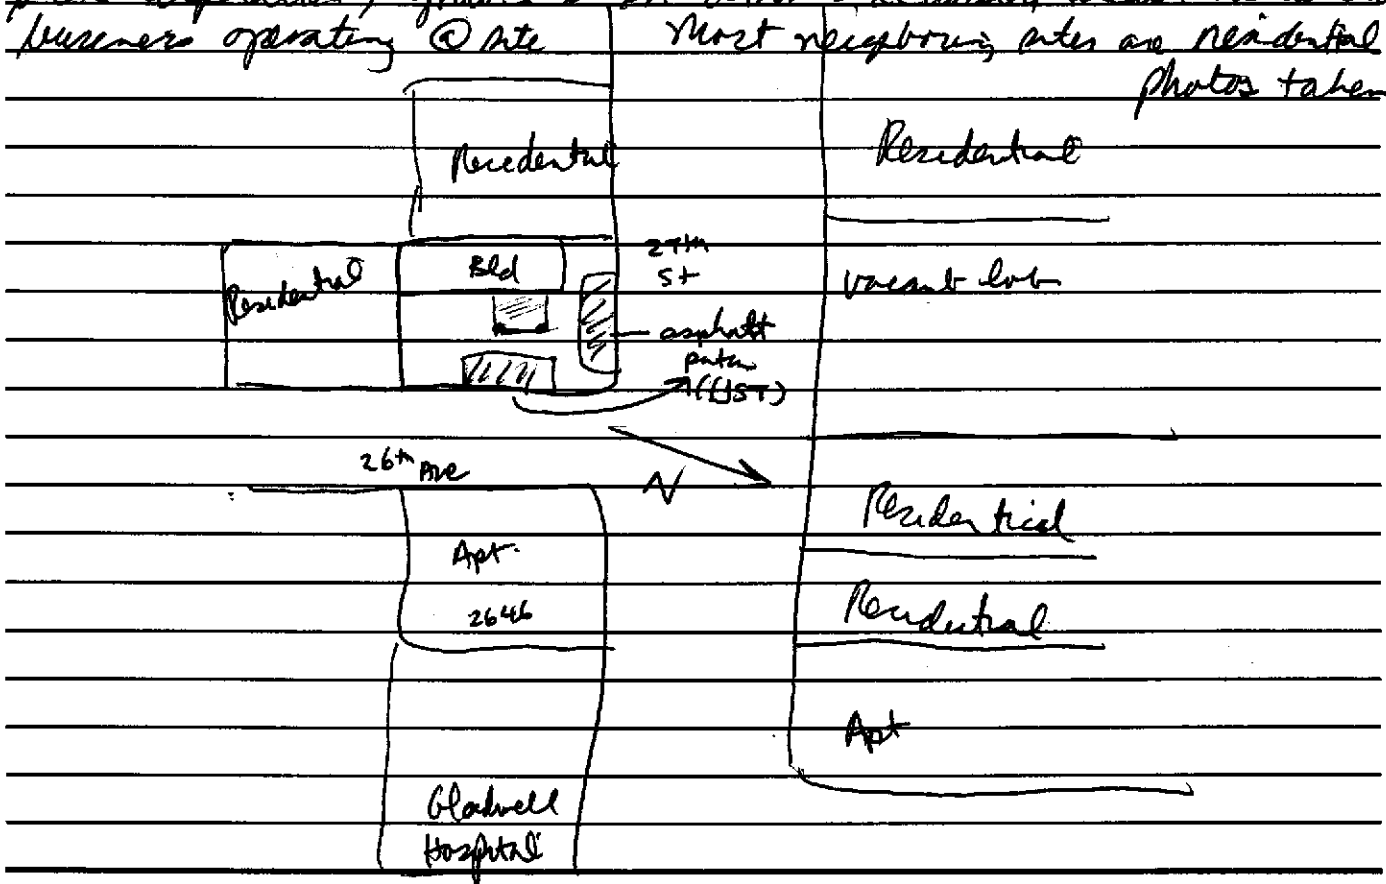 business operating @ site Most neighboring sites are residential
photos taken
Residential
Residential
Residential
Bld
27th
St
vacant lot
asphalt
patch
(UST)
26th Ave
N
Residential
Apt.
2646
Residential
Apt
Gladwell
Hospital